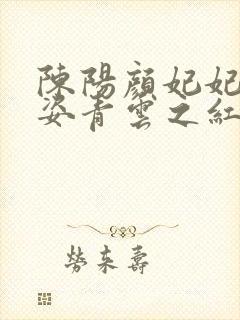 陳陽顏妃妃
姿青雲之紅
勞來壽